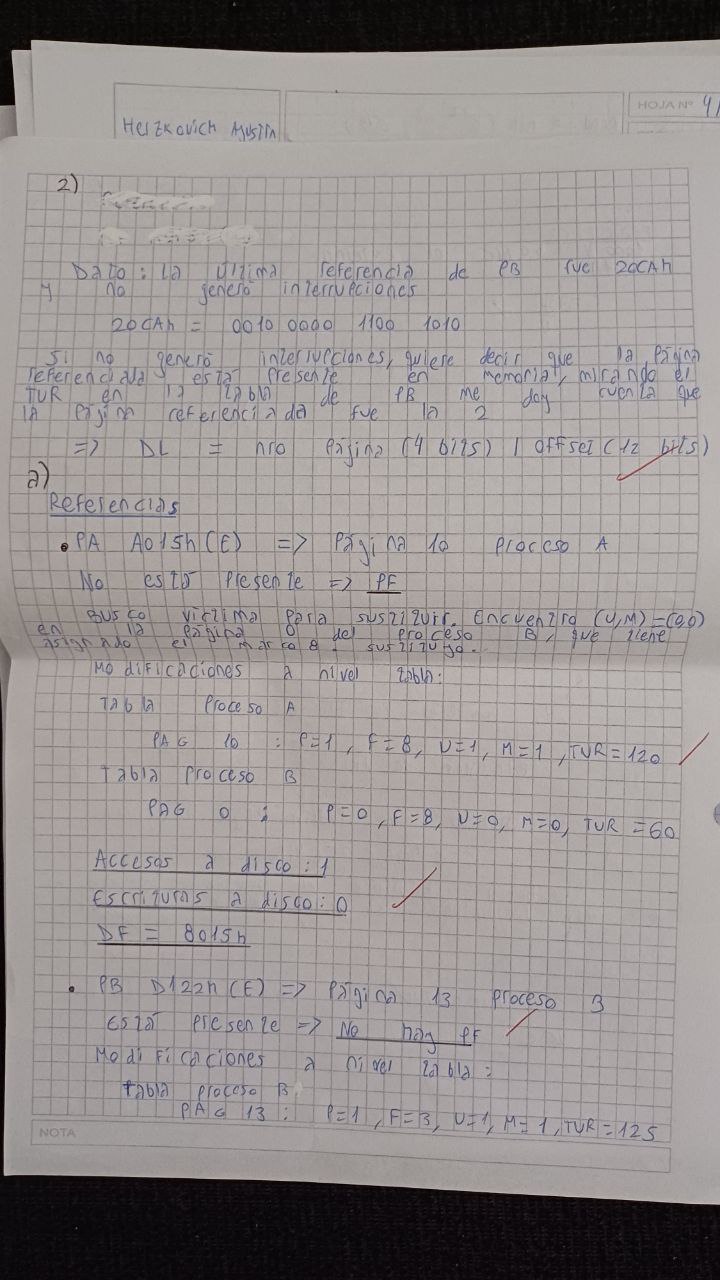 HOJA Nº 4/
Herzkovich Agustín
2)
Dato: la última referencia de PB fue 20CAh
y no generó interrupciones
20CAh = 0010 0000 1100 1010
Si no generó interrupciones, quiere decir que la página
referenciada está presente en memoria, mirando el
TUR en la tabla de PB me doy cuenta que
la página referenciada fue la 2
=> DL = nro página (4 bits) | offset (12 bits)
a)
Referencias
• PA A015h (E) => Página 10 proceso A
No está presente => PF
Busco víctima para sustituir. Encuentro (U,M)=(0,0)
en la página 0 del proceso B, que tiene
asignado el marco 8. sustituyo.
Modificaciones a nivel tabla:
Tabla proceso A
PAG 10 : P=1, F=8, U=1, M=1, TUR=120
Tabla proceso B
PAG 0 : P=0, F=8, U=0, M=0, TUR=60
Accesos a disco: 1
Escrituras a disco: 0
DF = 8015h
• PB D122h (E) => Página 13 proceso B
Está presente => No hay PF
Modificaciones a nivel tabla:
Tabla proceso B
PAG 13 : P=1, F=3, U=1, M=1, TUR=125
NOTA